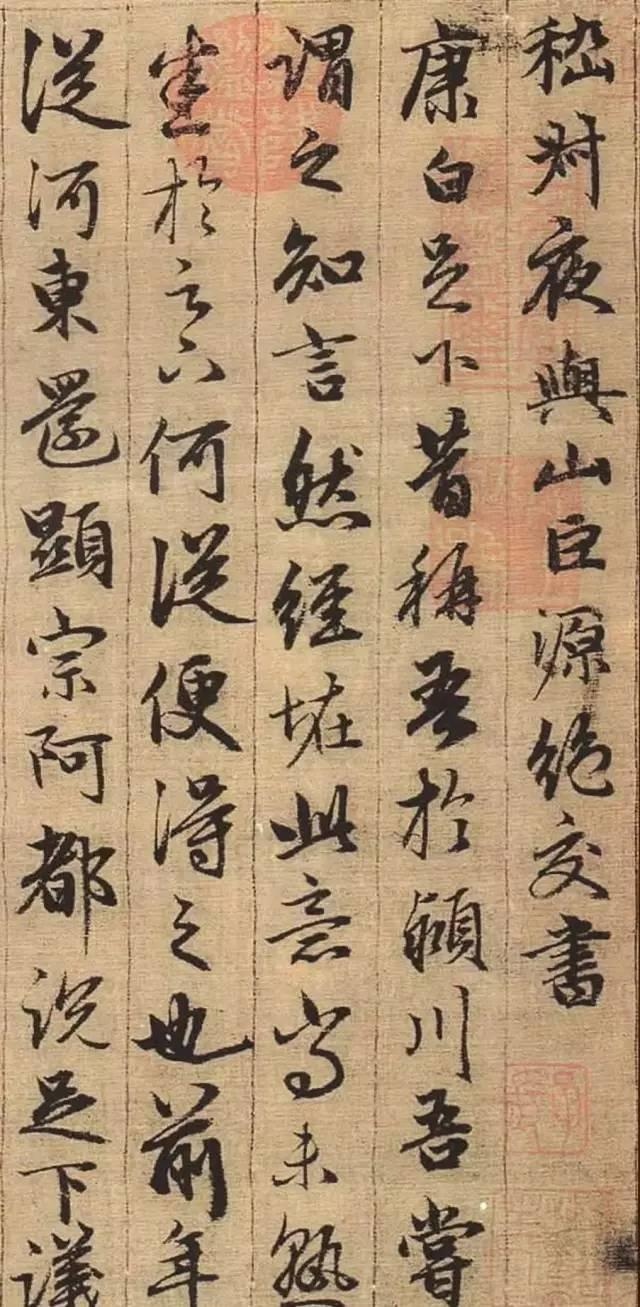 嵇叔夜與山巨源絕交書
康白足下昔稱吾於潁川吾嘗
謂之知言然經恠此意尚未熟
悉於足下何從便得之也前年
從河東還顯宗阿都說足下議